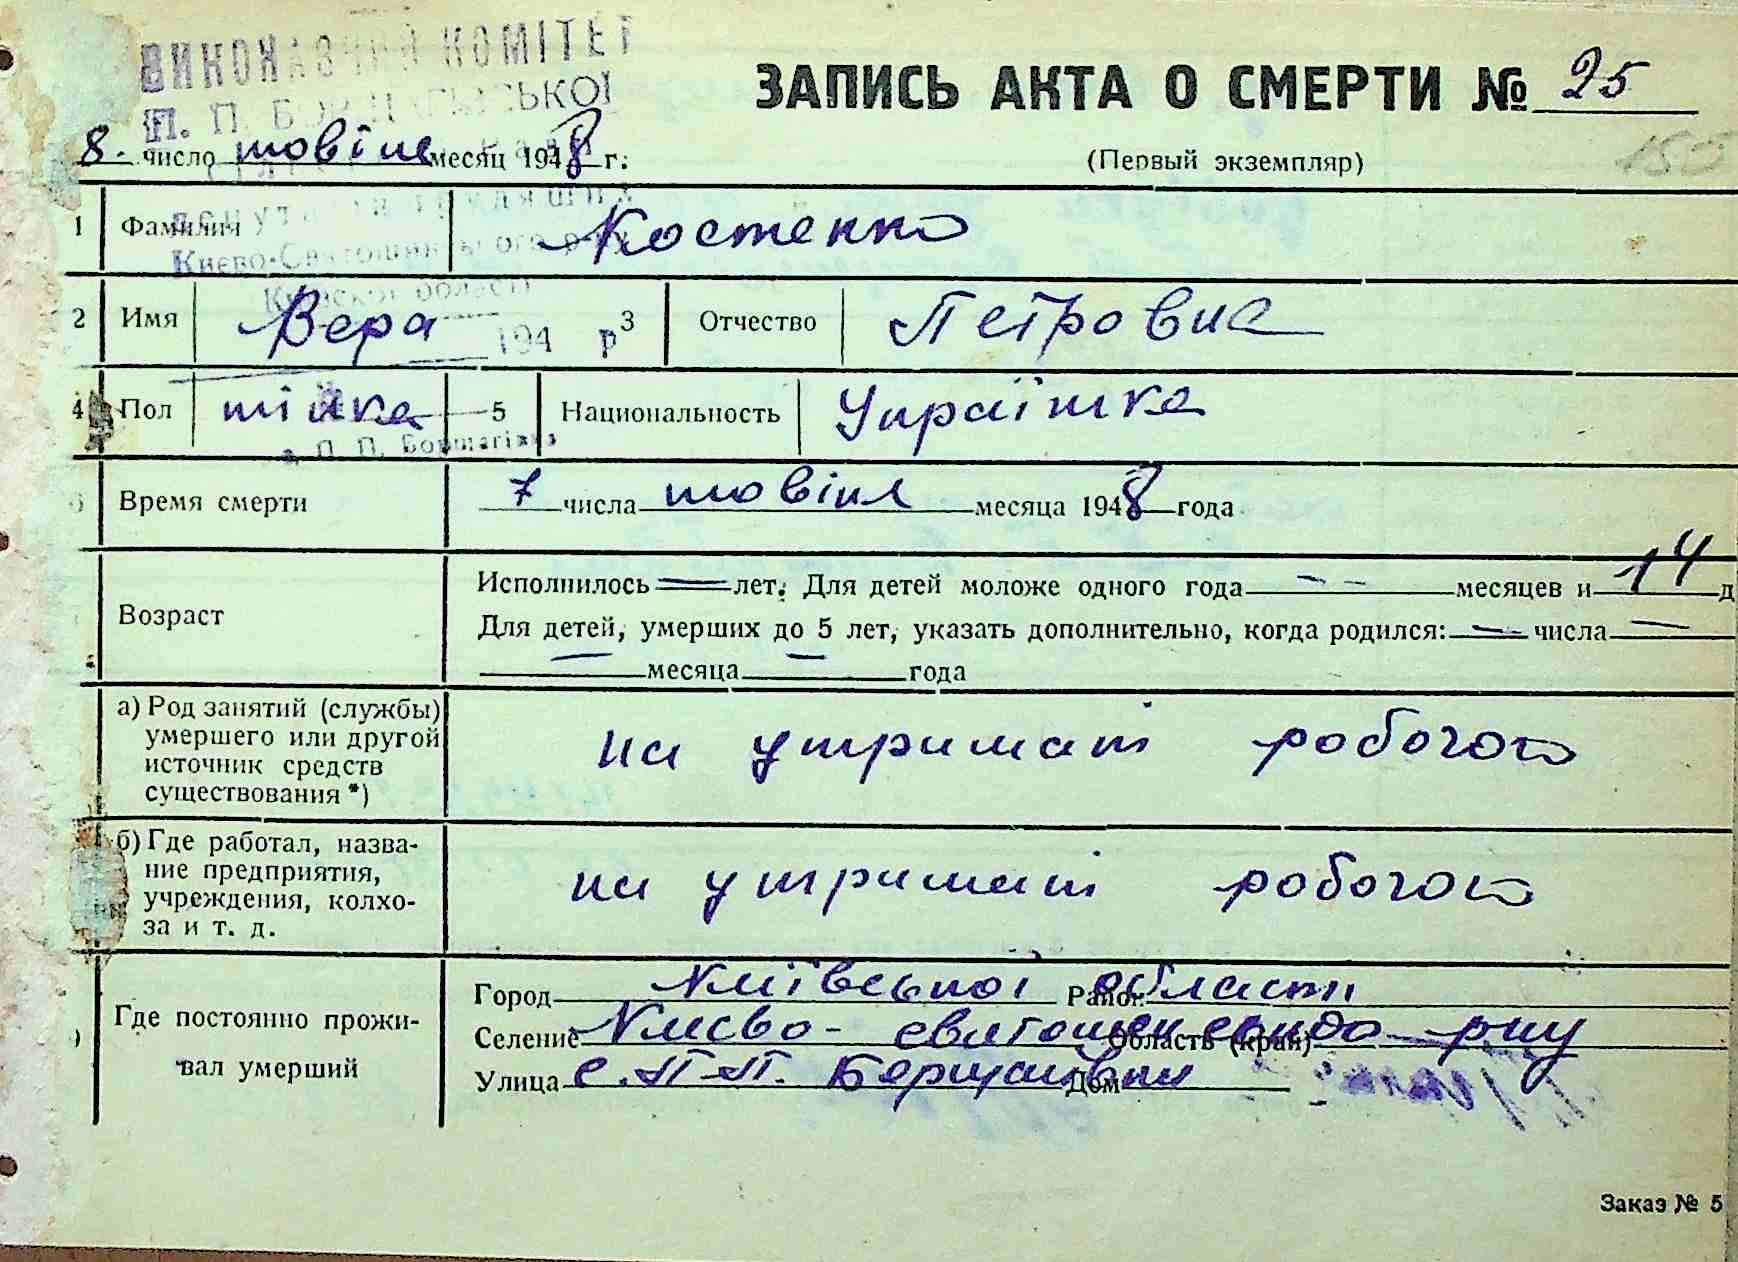 ВИКОНАВЧИЙ КОМІТЕТ
П. П. БОРЩАГІВСЬКОЇ
ЗАПИСЬ АКТА О СМЕРТИ № 25
8. число жовтня месяц 1948 г.
(Первый экземпляр)
150
депутатів трудящих
1 Фамилия Костенко
Києво-Святошинського р-ну
Київської області
2 Имя Вера 3 Отчество Петровна
194 р
4 Пол жінка 5 Национальность Українка
с. П. П. Борщагівка
Время смерти 7 числа жовтня месяца 1948 года
Возраст
Исполнилось — лет. Для детей моложе одного года — — месяцев и 14 д
Для детей, умерших до 5 лет, указать дополнительно, когда родился: — числа —
— месяца — года
а) Род занятий (службы)
умершего или другой
источник средств
существования *)
на утримані робочого
б) Где работал, назва-
ние предприятия,
учреждения, колхо-
за и т. д.
на утримані робочого
Где постоянно прожи-
вал умерший
Город Київської Район області
Селение Києво-Святошинського Область (край) р-ну
Улица с. П-П. Борщагівки Дом
Заказ № 5